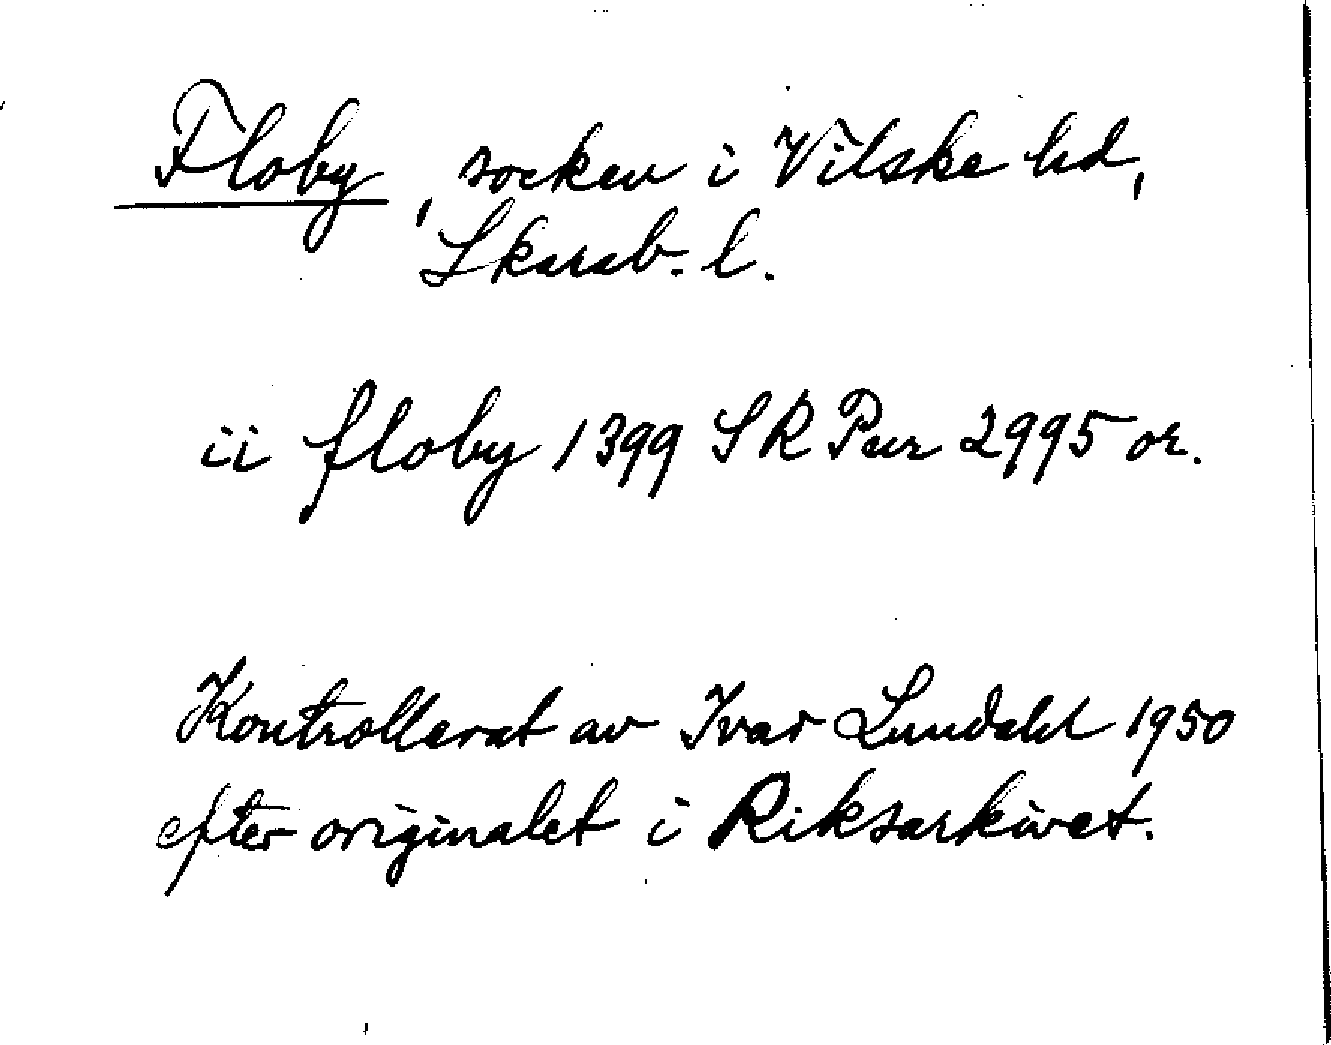 Floby, socken i Vilske hd,
Skarab. l.
ii floby 1399 SR Per 2995 or.
Kontrollerat av Ivar Lundahl 1950
efter originalet i Riksarkivet.